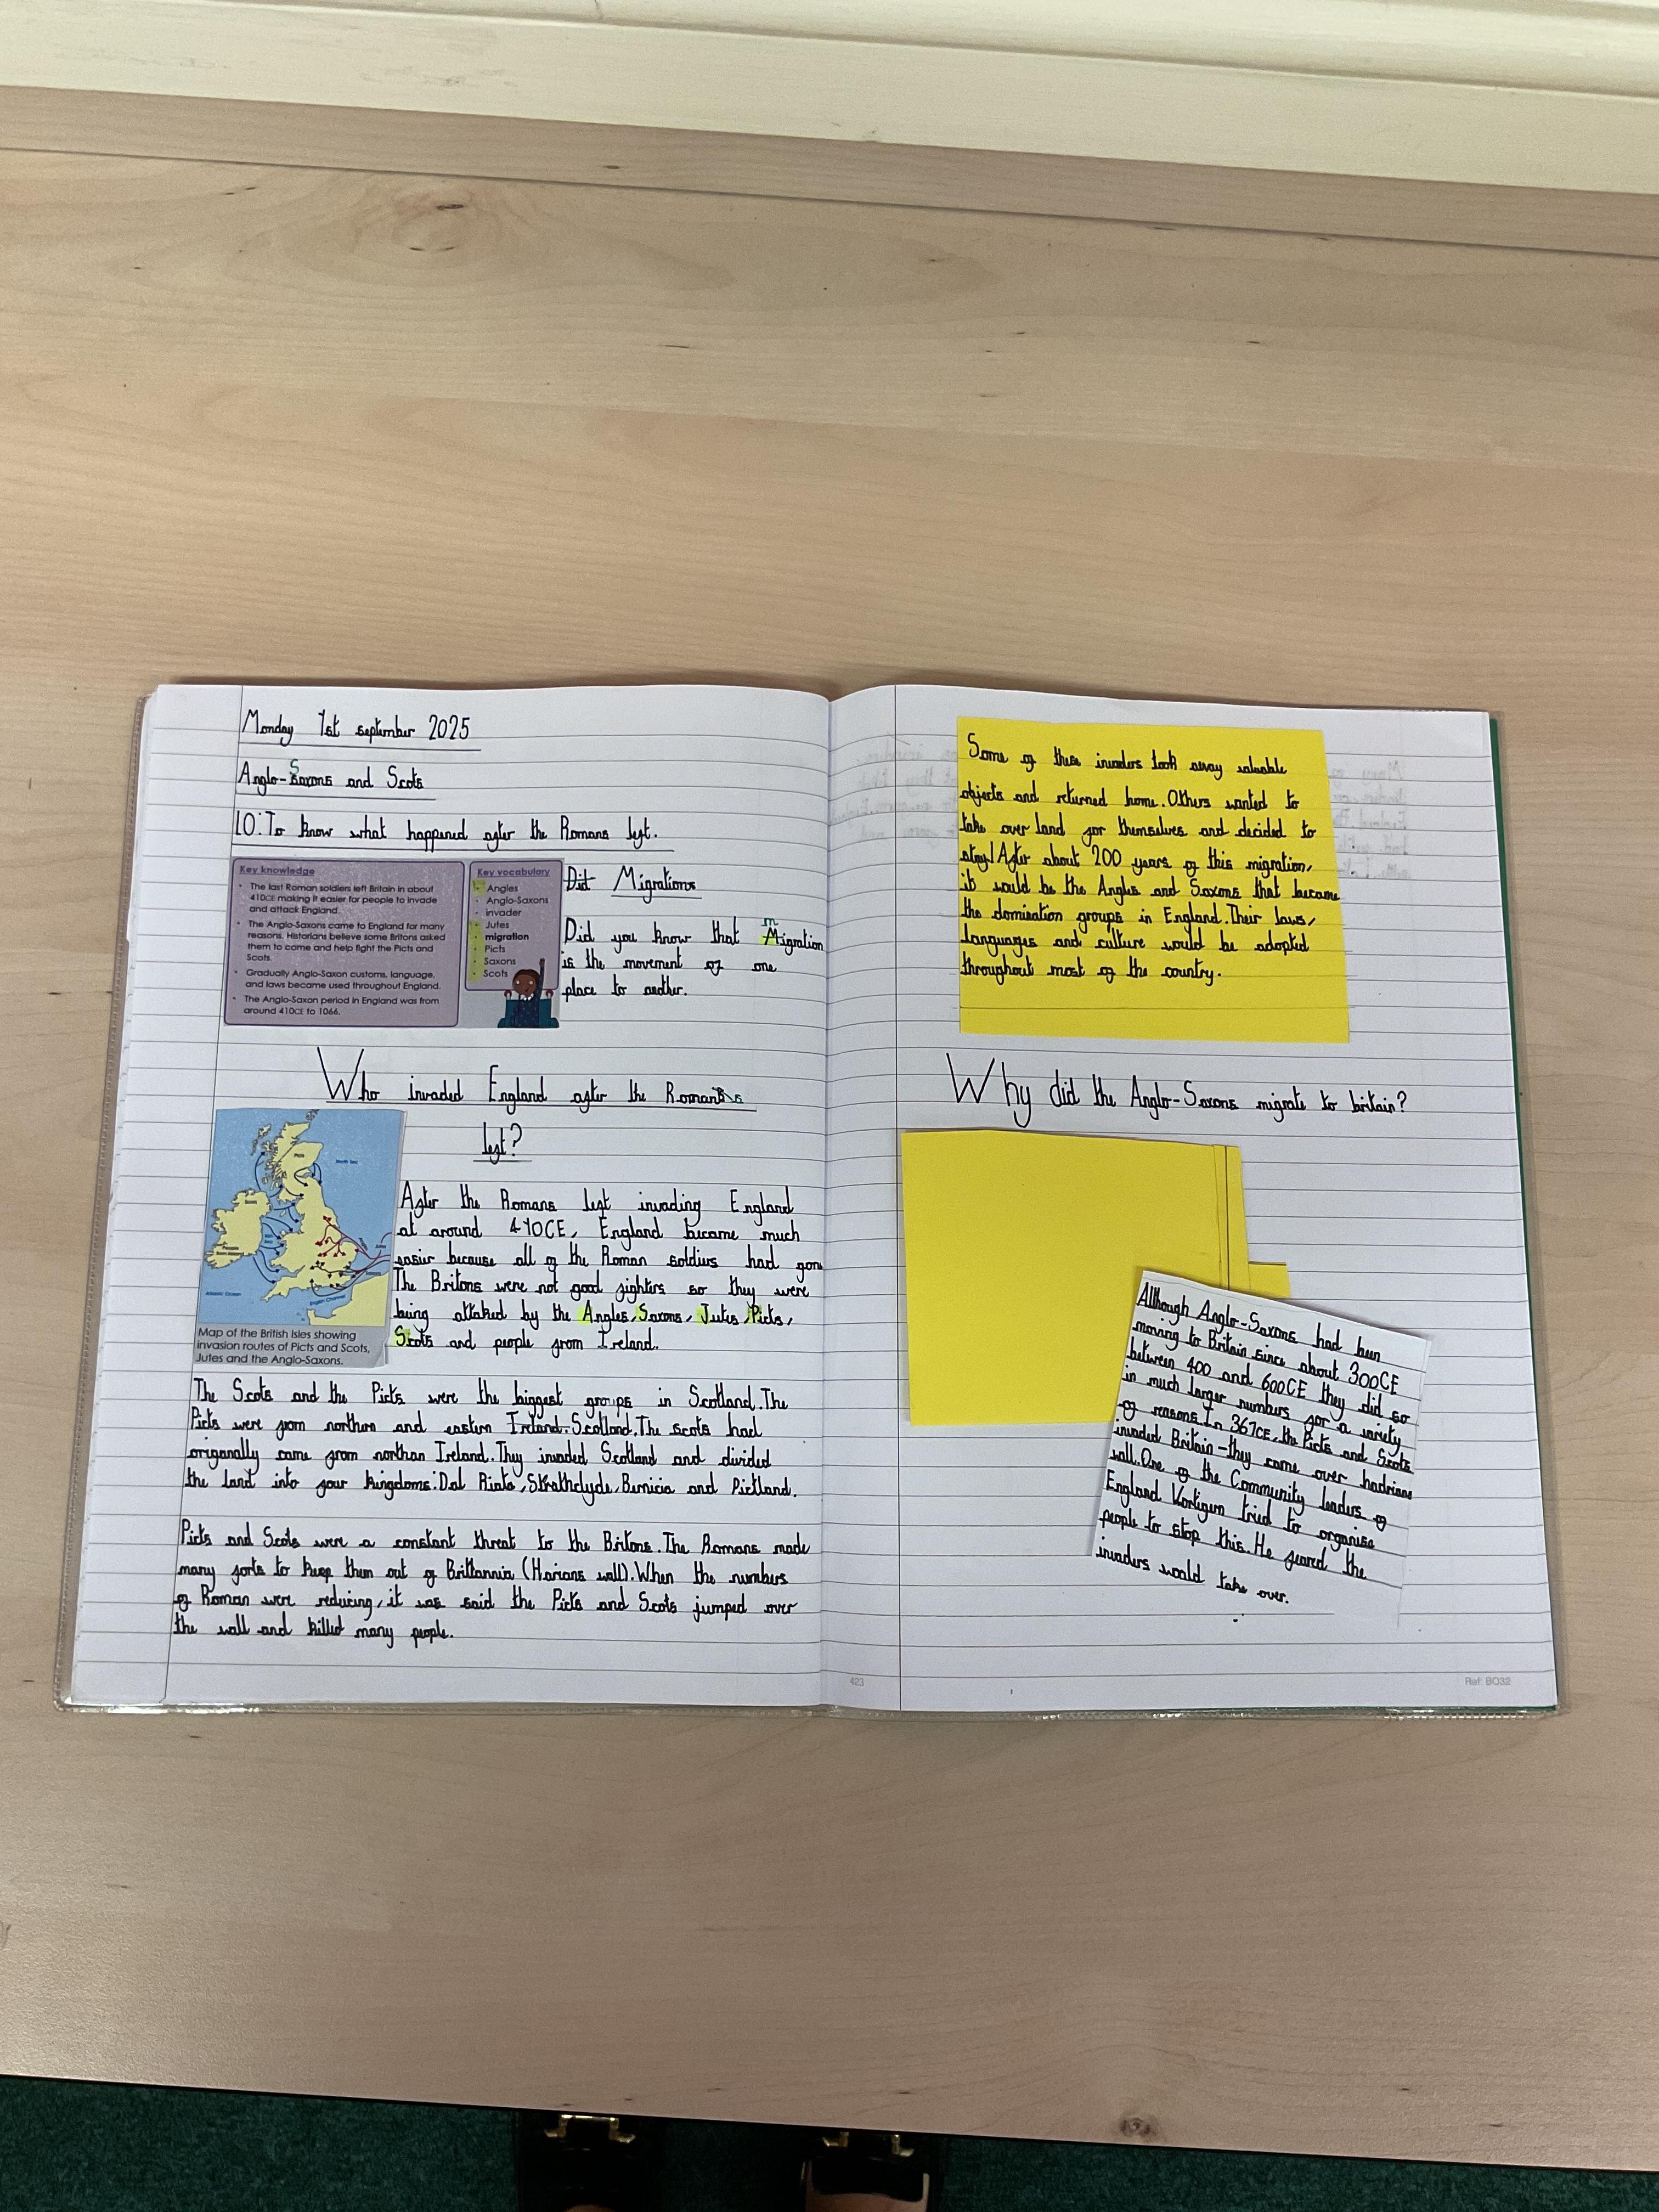 Monday 1st september 2025
Anglo-Saxons and Scots
LO: To know what happened after the Romans left.
Key knowledge
• The last Roman soldiers left Britain in about
410CE making it easier for people to invade
and attack England.
• The Anglo-Saxons came to England for many
reasons. Historians believe some Britons asked
them to come and help fight the Picts and
Scots.
• Gradually Anglo-Saxon customs, language,
and laws became used throughout England.
• The Anglo-Saxon period in England was from
around 410CE to 1066.
Key vocabulary
• Angles
• Anglo-Saxons
• invader
• Jutes
• migration
• Picts
• Saxons
• Scots
Did Migrations
Did you know that migration
is the movement of one
place to another.
Who invaded England after the Romans
left?
Picts
North Sea
Atlantic Ocean
English Channel
Jutes
Map of the British Isles showing
invasion routes of Picts and Scots,
Jutes and the Anglo-Saxons.
After the Romans left invading England
at around 410CE, England became much
easier because all of the Roman soldiers had gon
The Britons were not good fighters so they were
being attaked by the Angles, Saxons, Jutes, Picts,
Scots and people from Ireland.
The Scots and the Picts were the biggest groups in Scotland. The
Picts were from northen and eastern Ireland. Scotland. The scots had
origanally came from northan Ireland. They invaded Scotland and divided
the land into four kingdoms: Dal Riata, Strathclyde, Bernicia and Pictland.
Picts and Scots were a constant threat to the Britons. The Romans made
many forts to keep them out of Brittannia (Harians wall). When the numbers
of Roman were reducing, it was said the Picts and Scots jumped over
the wall and killed many people.
423
Some of these invaders took away valuable
objects and returned home. Others wanted to
take over land for themselves and decided to
stay/After about 200 years of this migration,
it would be the Angles and Saxons that became
the domination groups in England. Their laws,
languages and culture would be adopted
throughout most of the country.
Why did the Anglo-Saxons migrate to britain?
Although Anglo-Saxons had been
moving to Britain since about 300CE
between 400 and 600CE they did so
in much larger numbers for a variety
of reasons. In 367CE, the Picts and Scots
invaded Britain - they came over hadrians
wall. One of the Community leaders of
England Vortigern tried to organise
people to stop this. He feared the
invaders would take over.
Ref: BO32